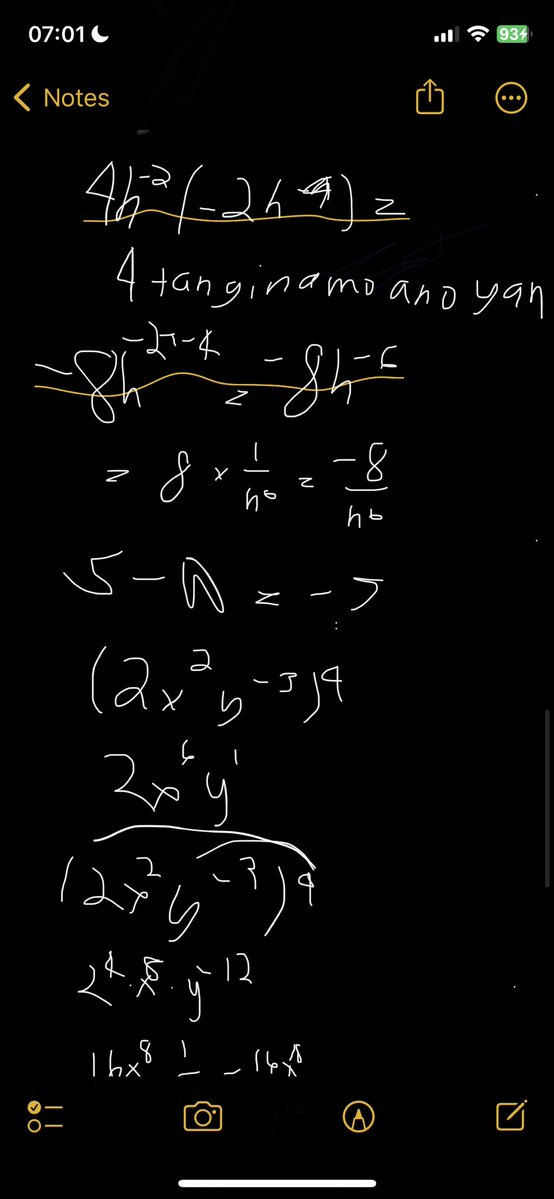 07:01
93
Notes
4h⁻²(-2h⁻⁴) =
4 tanginamo ano yan
-8h⁻²⁺⁻⁴ = -8h⁻⁶
= 8 × 1/h⁶ = -8/h⁶
(2x²y⁻³)⁴
2x⁶y¹
(2x²y⁻³)⁴
2⁴·x⁸·y⁻¹²
16x⁸ 1 – 16x⁸
y¹²